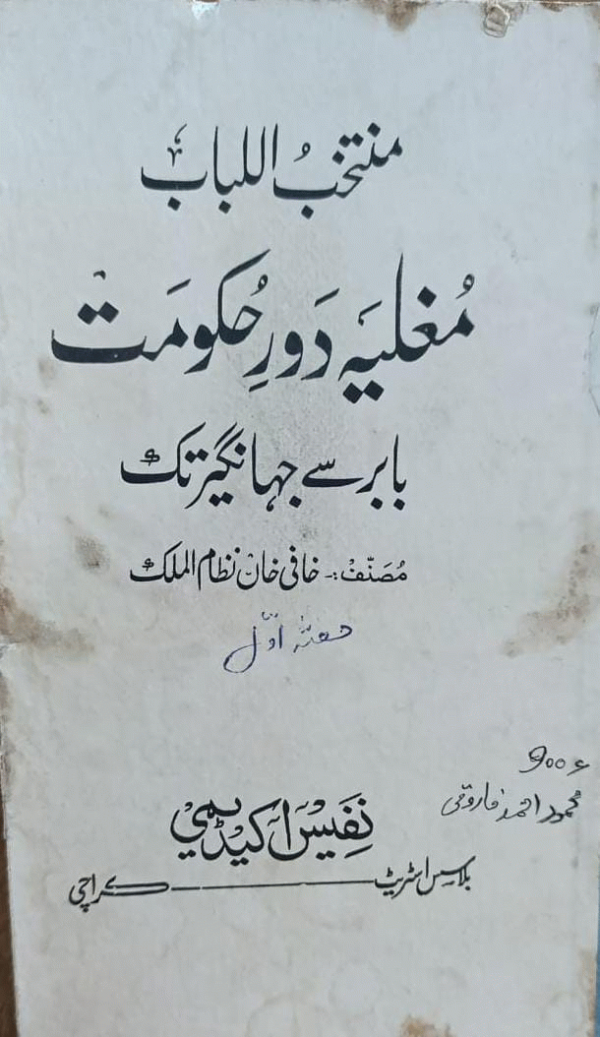 منتخب اللباب
مُغلیہ دَورِ حُکومَت
بابر سے جہانگیر تک
مُصَنّف :۔ خافی خان نظام الملک
حصّہ اوّل
محمود احمد فاروقی
نفیس اکیڈیمی
بلاسس اسٹریٹ ـــــــ کراچی